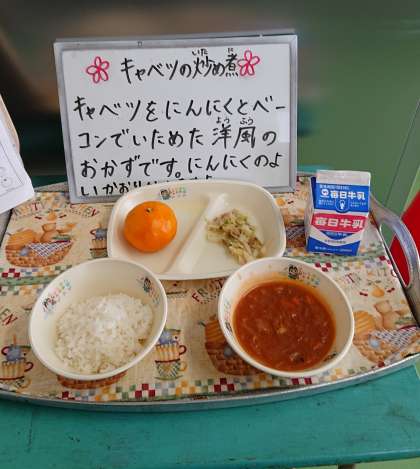 キャベツの炒め煮
いた に
キャベツをにんにくとベー
コンでいためた洋風の
ようふう
おかずです。にんにくのよ
いかおり
毎日牛乳
毎日牛乳